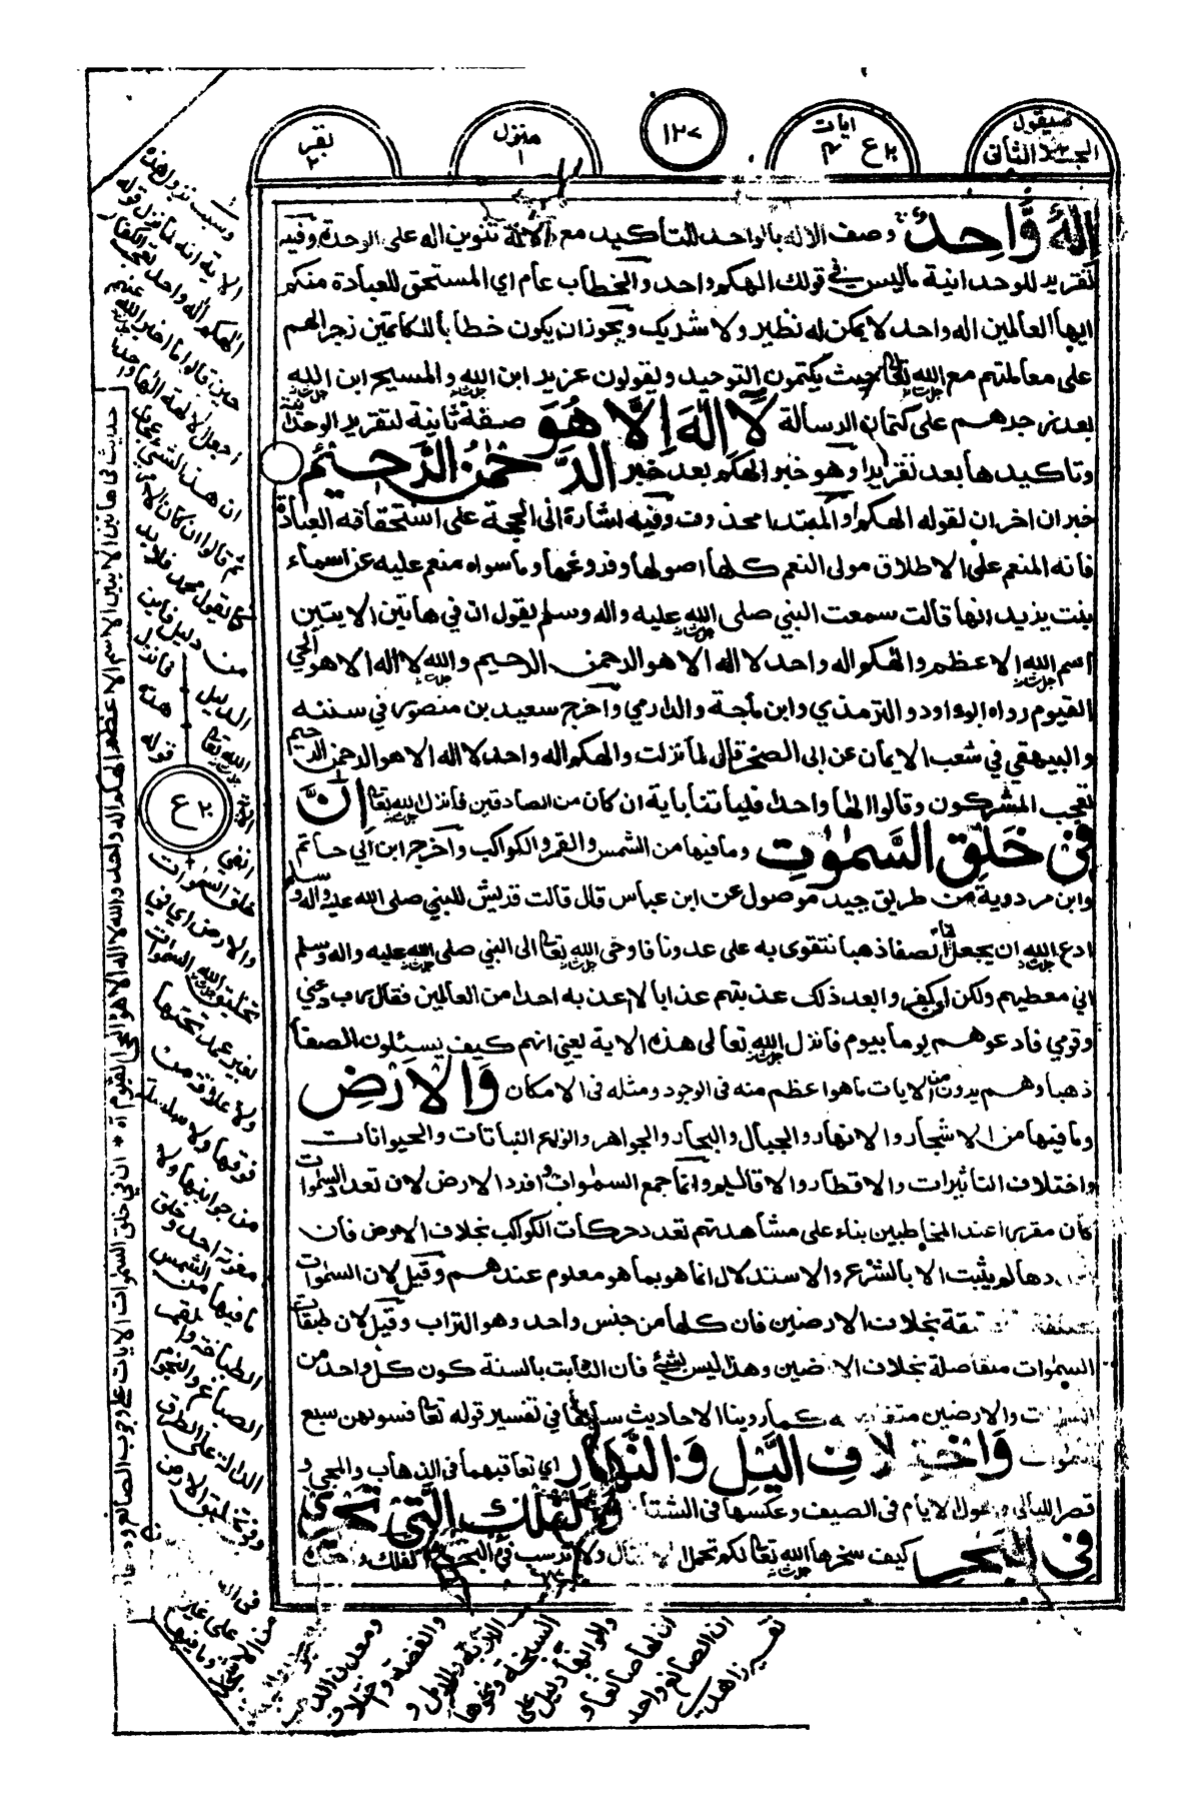 سيقول
الجزء الثانی
ايات
٢٠ع م
١٢٧
منزل
١
بقر
٢
اِلٰهٌ وَّاحِدٌ وصف الاله بالواحد للتأكيد مع دلالة تنوين اله على الوحدة وفيه
تقرير للوحدانية ما ليس في قولك الهكم واحد والخطاب عام اي المستحق للعبادة منكم
ايها العالمين اله واحد لا يمكن له نظير ولا شريك ويجوز ان يكون خطابا للكاتمين زجرا لهم
على معاملتهم مع الله تعالى حيث يكتمون التوحيد ويقولون عزير ابن الله والمسيح ابن الله
بعد زجرهم على كتمان الرسالة لَآ اِلٰهَ اِلَّا هُوَ صفة ثانية لتقرير الوحدانية
وتاكيدها بعد تقريرا وهو خبر الهكم بعد خبر الرَّحْمٰنُ الرَّحِيْمُ
خبران اخران لقوله الهكم او المبتدا محذوف وفيه اشارة الى الحجة على استحقاقه العبادة
فانه المنعم على الاطلاق مولى النعم كلها اصولها وفروعها وما سواه منعم عليه عن اسماء
بنت يزيد انها قالت سمعت النبي صلى الله عليه واله وسلم يقول ان في هاتين الايتين
اسم الله الاعظم والهكم اله واحد لا اله الا هو الرحمن الرحيم والله لا اله الا هو الحي
القيوم رواه ابو داود والترمذي وابن ماجة والدارمي واخرج سعيد بن منصور في سننه
والبيهقي في شعب الايمان عن ابى الضحى قال لما نزلت والهكم اله واحد لا اله الا هو الرحمن الرحيم
تعجب المشركون وقالوا الها واحدا فلياتنا باية ان كان من الصادقين فانزل الله تعالى اِنَّ
فِيْ خَلْقِ السَّمٰوٰتِ وما فيها من الشمس والقمر والكواكب واخرج ابن ابي حاتم
وابن مردوية من طريق جيد موصول عن ابن عباس قال قالت قريش للنبي صلى الله عليه واله وسلم
ادع الله ان يجعل لنا الصفا ذهبا نتقوى به على عدونا فاوحى الله تعالى الى النبي صلى الله عليه واله وسلم
اني معطيهم ولكن ان كفروا بعد ذلك عذبتهم عذابا لا اعذبه احدا من العالمين فقال رب دعني
وقومي فادعوهم يوما بيوم فانزل الله تعالى هذه الاية يعني انهم كيف يسئلون الصفا
ذهبا وهم يرون من الايات ما هو اعظم منه فى الوجود ومثله فى الامكان وَالْاَرْضِ
وما فيها من الاشجار والانهار والجبال والبحار والجواهر وانواع النباتات والحيوانات
واختلاف التأثيرات والاقطار والاقاليم وانما جمع السمٰوات وافرد الارض لان تعدد السمٰوات
كان مقررا عند المخاطبين بناء على مشاهدتهم تعدد حركات الكواكب بخلاف الارض فان
دها لم يثبت الا بالشرع والاستدلال انما هو بما هو معلوم عندهم وقيل لان السمٰوات
بخلاف الارضين فان كلها من جنس واحد وهو التراب وقيل لان طبقات
السمٰوات متفاصلة بخلاف الارضين وهذا ليس بشئ فان الثابت بالسنة كون كل واحد من
السمٰوات والارضين كما روينا الاحاديث سابقا في تفسير قوله تعالى فسوٰهن سبع
سمٰوات وَاخْتِلَافِ الَّيْلِ وَالنَّهَارِ اي تعاقبهما فى الذهاب والمجيء و
قصر الليالي وطول الايام فى الصيف وعكسها فى الشتاء وَالْفُلْكِ الَّتِيْ تَجْرِيْ
فِى الْبَحْرِ كيف سخرها الله تعالى لكم تحمل الاثقال ولا ترسب في البحر
وسبب نزول هذه
الاية انه لما نزل قوله
الهكم اله واحد تعجب الكفار
اجعل الالهة الها واحدا
ان هذا لشئ عجاب
ثم قالوا ان كان الامر
كما يقول محمد فلا بد
من دليل فاين
الدليل فانزل
الله تعالى هذه
قوله
٢٠ع
خلق السموات
والارض اي في
تخليق الله السموات
بغير عمد تحتها
ولا علاقة من
فوقها
من جوانبها ولا
معونة احد وخلق
ما فيها من الشمس
الطباخة والقمر
الصباغ والنجوم
الدالة على الطرق
وفى تخليق الارض
ومعدن
والفضة واختلاف
السبخة ونحوها
والوانها دليل على
ان لها صانعا و
ان الصانع واحد
تفسير زاهدى
حديث فى هاتين الايتين الاسم الاعظم الهكم اله واحد والله لا اله الا هو الحي القيوم اه * ان في خلق السموات الايات على وجوب الصانع